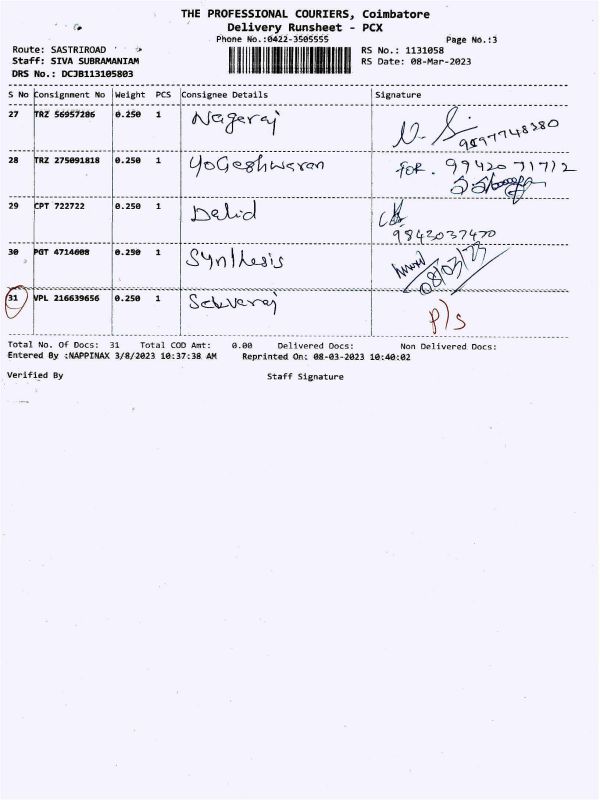 THE PROFESSIONAL COURIERS, Coimbatore
Delivery Runsheet - PCX
Phone No.:0422-3505555
Page No.:3
Route: SASTRIROAD
RS No.: 1131058
Staff: SIVA SUBRAMANIAM
RS Date: 08-Mar-2023
DRS No.: DCJB113105803
S No Consignment No Weight PCS Consignee Details Signature
27 TRZ 56957286 0.250 1 Nageraj
28 TRZ 275091818 0.250 1 YoGeshwaran FOR. 9942071712
29 CPT 722722 0.250 1 David
9843037470
30 PGT 4714008 0.250 1 Synthesis 08/03/23
31 VPL 216639656 0.250 1 Selvaraj P/s
Total No. Of Docs: 31 Total COD Amt: 0.00 Delivered Docs: Non Delivered Docs:
Entered By :NAPPINAX 3/8/2023 10:37:38 AM Reprinted On: 08-03-2023 10:40:02
Verified By Staff Signature